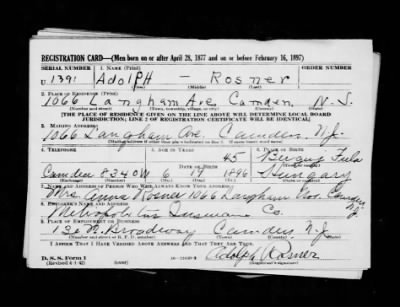 REGISTRATION CARD—(Men born on or after April 28, 1877 and on or before February 16, 1897)
SERIAL NUMBER 1. NAME (Print) ORDER NUMBER
U 1391 Adolph — Rosner
(First) (Middle) (Last)
2. PLACE OF RESIDENCE (Print)
1066 Langham Ave Camden N.J.
(Number and street) (Town, township, village, or city) (County) (State)
[THE PLACE OF RESIDENCE GIVEN ON THE LINE ABOVE WILL DETERMINE LOCAL BOARD
JURISDICTION; LINE 2 OF REGISTRATION CERTIFICATE WILL BE IDENTICAL]
3. MAILING ADDRESS
1066 Langham Ave. Camden N.J.
4. TELEPHONE 5. AGE IN YEARS 6. PLACE OF BIRTH
45
DATE OF BIRTH
Camden 8340W 6 19 1896 Hungary
7. NAME AND ADDRESS OF PERSON WHO WILL ALWAYS KNOW YOUR ADDRESS
Mrs. Anna Rosner 1066 Langham Ave. Camden N.J.
8. EMPLOYER'S NAME AND ADDRESS
Metropolitan Insurance Co.
9. PLACE OF EMPLOYMENT OR BUSINESS
130 N. Broadway Camden N.J.
(Number and street or R. F. D. number) (Town) (County) (State)
I AFFIRM THAT I HAVE VERIFIED ABOVE ANSWERS AND THAT THEY ARE TRUE.
D. S. S. Form 1
(Revised 4-1-42) Adolph Rosner